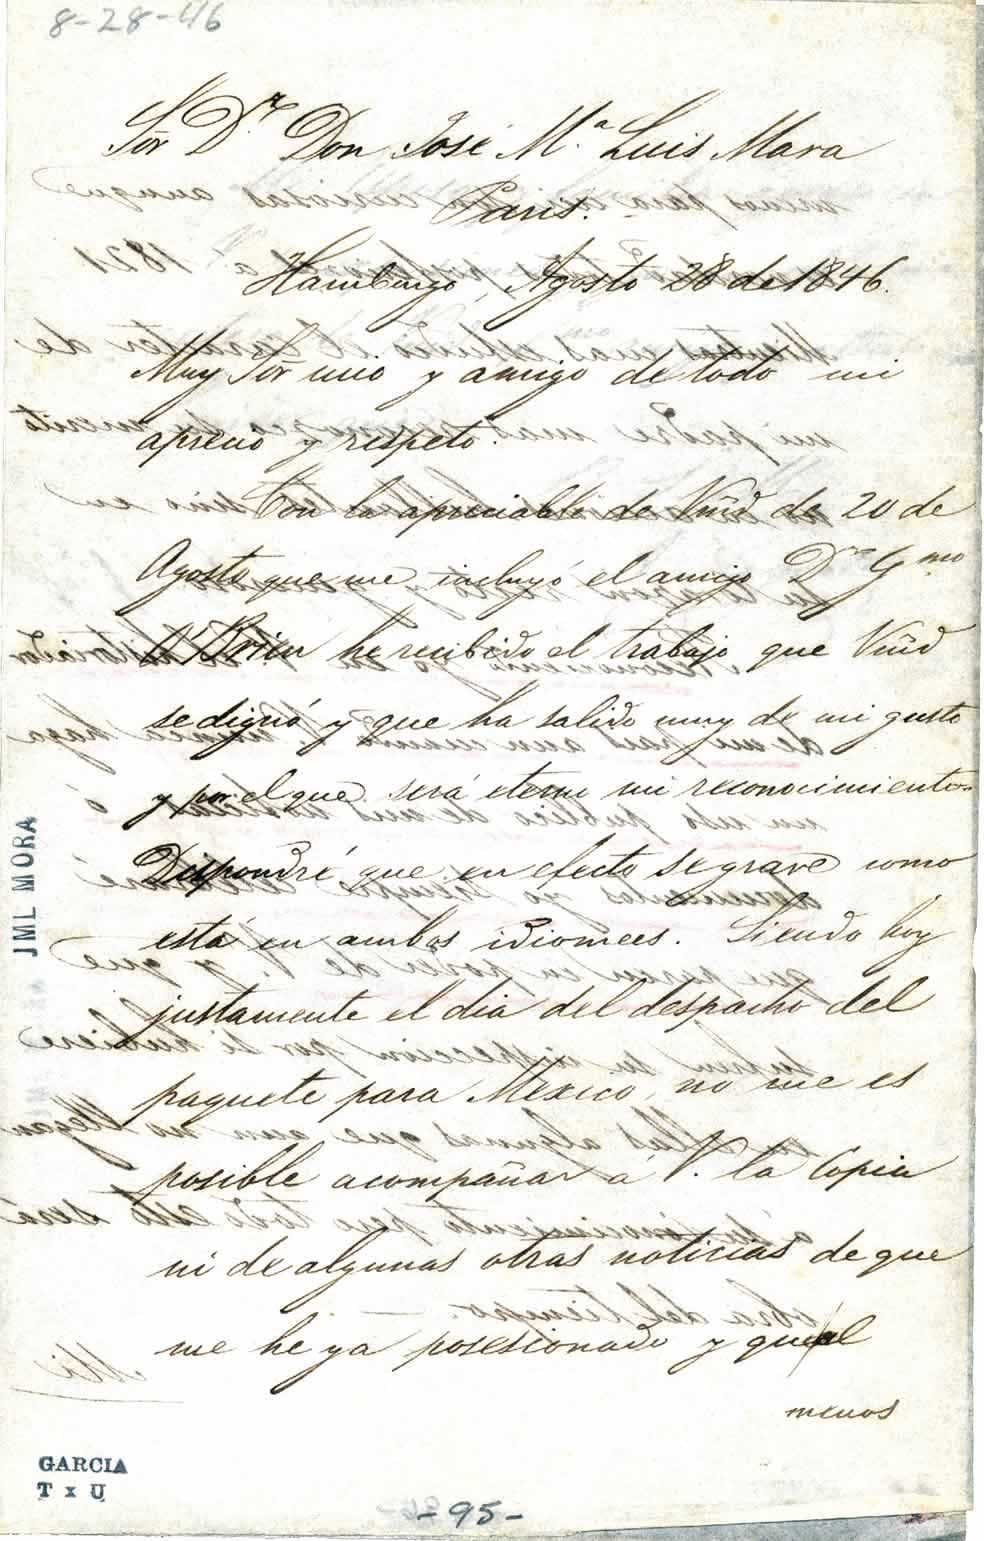 8-28-46
Sor Dr. Don José Ma. Luis Mora
Paris.
Hamburgo, Agosto 28 de 1846.
Muy Sor mio y amigo de todo mi
aprecio y respeto.
Con la apreciable de Vmd de 20 de
Agosto que me incluyó el amigo Dn Gmo
O'Brien he recibido el trabajo que Vmd
se dignó y que ha salido muy de mi gusto
y por el que será eterno mi reconocimiento.
Dispondré que en efecto se grave como
está en ambos idiomees. Siendo hoy
justamente el dia del despacho del
paquete para Mexico, no me es
posible acompañar á V. la Copia
ni de algunas otras noticias de que
me he ya posesionado y qual
menos
JML MORA
GARCIA
T x U
-95-